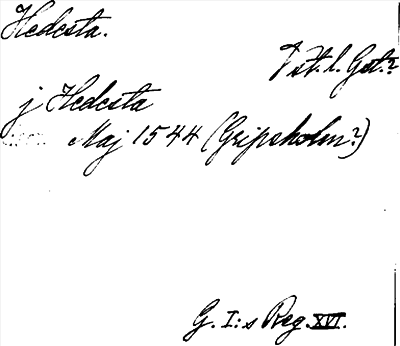 Hedesta.
Vst. l. Gst.?
j Hedesta
Maj 1544 (Gripsholm?)
G. I:s Reg. XVI.